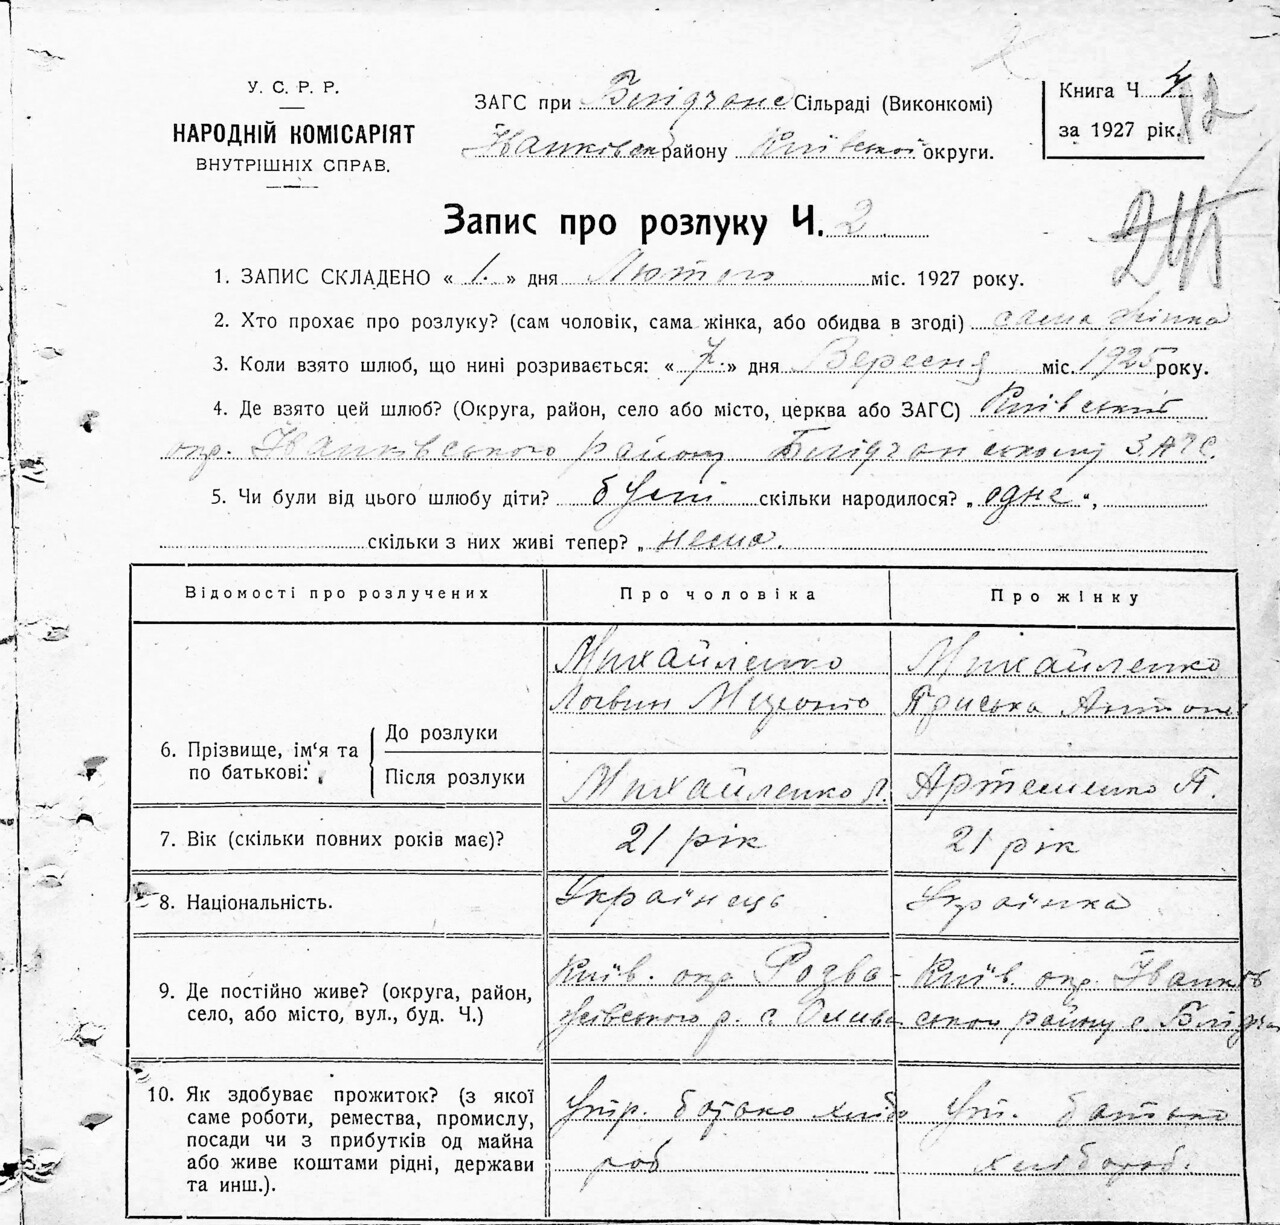 У. С. Р. Р.
НАРОДНІЙ КОМІСАРІЯТ
ВНУТРІШНІХ СПРАВ.
ЗАГС при Блідчане Сільраді (Виконкомі)
Іванківськ району Київської округи.
Книга Ч.
за 1927 рік.
12
Запис про розлуку Ч. 2
1. ЗАПИС СКЛАДЕНО « 1. » дня Лютого міс. 1927 року.
2. Хто прохає про розлуку? (сам чоловік, сама жінка, або обидва в згоді) сама жінка
3. Коли взято шлюб, що нині розривається: « 7. » дня Вересня міс. 1925 року.
4. Де взято цей шлюб? (Округа, район, село або місто, церква або ЗАГС) Київський
окр. Іванківського району Блідчанському ЗАГС.
5. Чи були від цього шлюбу діти? були скільки народилося? „ одне “,
скільки з них живі тепер? „ нема.
Відомості про розлучених
Про чоловіка
Про жінку
6. Прізвище, ім‘я та по батькові:
До розлуки
Михайленко
Логвин
Михайленко
Пріська Антон
Після розлуки
Михайленко Л.
Артеменко П.
7. Вік (скільки повних років має)?
21 рік
21 рік
8. Національність.
Українець
Українка
9. Де постійно живе? (округа, район,
село, або місто, вул., буд. Ч.)
Київ. окр. Розва-
жівського р. с. Олива
Київ. окр. Іванків
ського району с. Блідча
10. Як здобуває прожиток? (з якої
саме роботи, ремества, промислу,
посади чи з прибутків од майна
або живе коштами рідні, держави
та инш.).
Утр. батько хлібо
роб
Ут. батько
хлібороб.